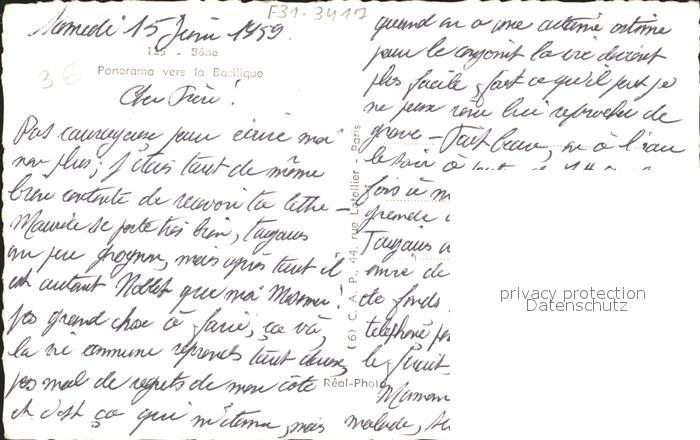 F31-3417
Samedi 15 Juin 1959.
125 - Bône
3 €
Panorama vers la Basilique
Cher Frère!
Pas courageuse pour écrire moi
non plus; j'étais tout de même
bien contente de recevoir ta lettre -
Maurice se porte très bien, toujours
un peu grognon, mais après tout il
est autant Nollet que moi
pas grand chose à faire, ça va,
la vie commune reprends tout doux,
pas mal de regrets de mon côté
et c'est ça qui m'étonne, mais
quand on a une certaine estime
pour le conjoint la vie devient
plus facile, fait ce qu'il peut je
ne peux rien lui reprocher de
grave - Fait beau, on à l'eau
le soir à
fois
grande
Toujours
envie de
de fonds
téléphoné
le
Maman
malade,
(6) C. A. P., 44, rue Letellier - Paris
Réal-Photo
privacy protection
Datenschutz